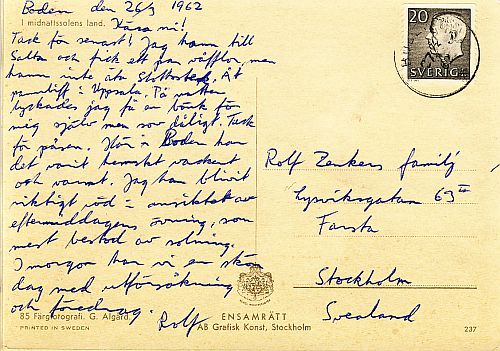 Boden den 26/3 1962
I midnattssolens land.
Kära ni!
Tack för senast! Jag hann till
Salta och fick ett par våfflor, men
hann inte äta Slottsstek. Åt
pannbiff i Uppsala. På natten
lyckades jag få en bänk för
mig själv men sov dåligt. Tack
för påsen. Här i Boden har
det varit hemskt vackert
och varmt. Jag har blivit
riktigt röd i ansiktet av
eftermiddagens övning, som
mest bestod av solning.
I morgon har vi en skön
dag med utförsåkning
och föredrag. Rolf
85 Färgfotografi. G. Algård.
PRINTED IN SWEDEN
ENSAMRÄTT
AB Grafisk Konst, Stockholm
20
SVERIGE
Rolf Zenkers familj
Lysviksgatan 63
Farsta
Stockholm
Svealand
237